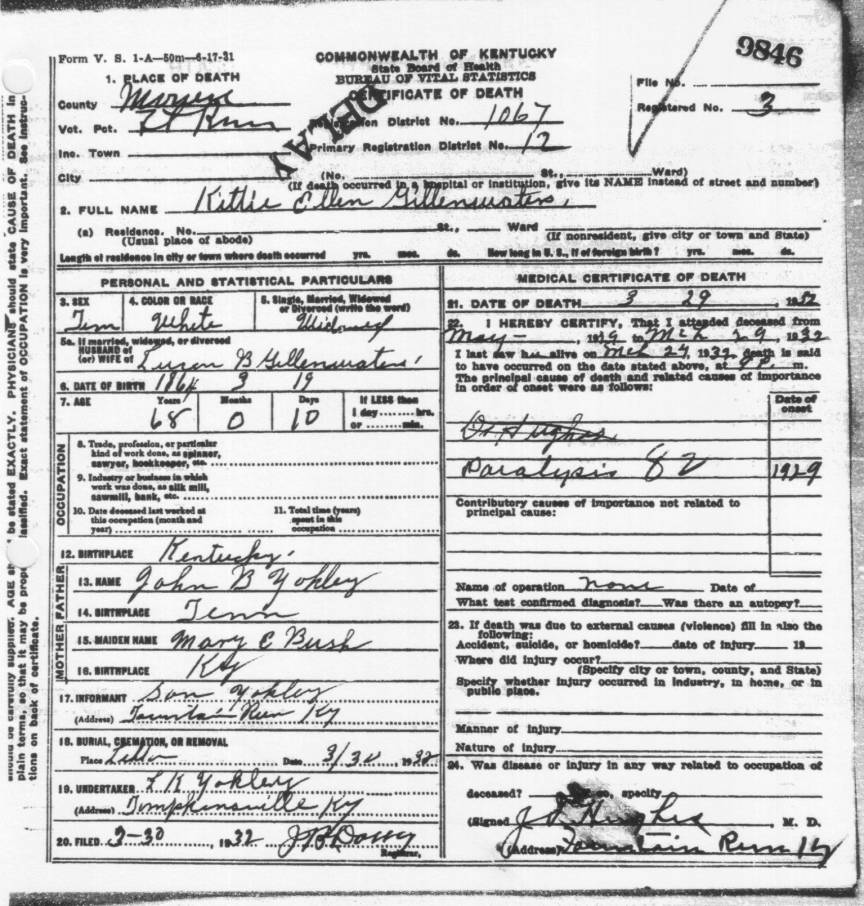 9846
Form V. S. 1-A—50m—6-17-31
COMMONWEALTH OF KENTUCKY
State Board of Health
BUREAU OF VITAL STATISTICS
CERTIFICATE OF DEATH
DELAY
File No.
Registered No. 3
1. PLACE OF DEATH
County
Vot. Pct. Run
Registration District No. 1067
Inc. Town
Primary Registration District No. 12
City (No. St., Ward)
(If death occurred in a hospital or institution, give its NAME instead of street and number)
2. FULL NAME Kittie Ellen Gillenwaters,
(a) Residence. No. St., Ward
(Usual place of abode) (If nonresident, give city or town and State)
Length of residence in city or town where death occurred yrs. mos. ds. How long in U. S., if of foreign birth? yrs. mos. ds.
PERSONAL AND STATISTICAL PARTICULARS
3. SEX 4. COLOR OR RACE 5. Single, Married, Widowed or Divorced (write the word)
Fem White Widowed
5a. If married, widowed, or divorced
HUSBAND of
(or) WIFE of B Gillenwaters.
6. DATE OF BIRTH 1864 3 19
7. AGE Years Months Days If LESS than
68 0 10 1 day hrs.
or min.
OCCUPATION
8. Trade, profession, or particular
kind of work done, as spinner,
sawyer, bookkeeper, etc.
9. Industry or business in which
work was done, as silk mill,
sawmill, bank, etc.
10. Date deceased last worked at 11. Total time (years)
this occupation (month and spent in this
year) occupation
12. BIRTHPLACE Kentucky.
FATHER
13. NAME John B Yokley
14. BIRTHPLACE Tenn
MOTHER
15. MAIDEN NAME Mary E Bush
16. BIRTHPLACE Ky
17. INFORMANT Yokley
(Address) Fountain Run Ky
18. BURIAL, CREMATION, OR REMOVAL
Place Date 3/30, 1932
19. UNDERTAKER L K Yokley
(Address) Tompkinsville Ky
20. FILED 3-30, 1932
Registrar.
MEDICAL CERTIFICATE OF DEATH
21. DATE OF DEATH 3 29, 1932
22. I HEREBY CERTIFY, That I attended deceased from
May - , 1929 to Mch 29, 1932
I last saw her alive on Mch 27, 1932, death is said
to have occurred on the date stated above, at m.
The principal cause of death and related causes of importance
in order of onset were as follows:
Date of
onset
Dr Hughes
Paralysis 82 1929
Contributory causes of importance not related to
principal cause:
Name of operation none Date of
What test confirmed diagnosis? Was there an autopsy?
23. If death was due to external causes (violence) fill in also the
following:
Accident, suicide, or homicide? date of injury 19
Where did injury occur?
(Specify city or town, county, and State)
Specify whether injury occurred in industry, in home, or in
public place.
Manner of injury
Nature of injury
24. Was disease or injury in any way related to occupation of
deceased? so, specify
(Signed Hughes M. D.
(Address) Fountain Run Ky
should be carefully supplied. AGE be stated EXACTLY. PHYSICIANS should state CAUSE OF DEATH in
plain terms, so that it may be classified. Exact statement of OCCUPATION is very important. See instruc-
tions on back of certificate.